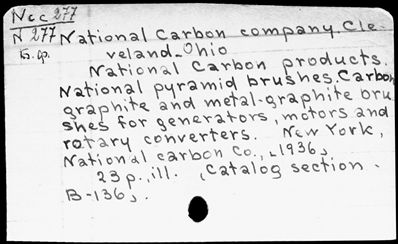 Ncc 277
N 277
National Carbon company. Cle-
veland. Ohio
National Carbon products.
National pyramid brushes. Carbon
graphite and metal-graphite bru
shes for generators, motors and
rotary converters. New York,
National carbon Co., 1936,
23 p., ill. (Catalog section.
B-136).